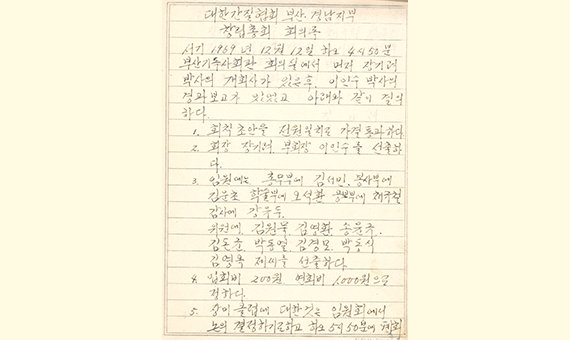 대한간질협회 부산·경남지부
창립총회 회의록
서기 1969년 12월 12일 하오 4시 50분
부산기독사회관 회의실에서 먼저 장기려
박사의 개회사가 있은후, 이인수 박사의
경과보고가 있었고 아래와 같이 결의
하다.
1. 회칙초안을 전원일치로 가결통과하다
2. 회장 장기려, 부회장 이인수를 선출하
다.
3. 임원에는 총무부에 김서민, 봉사부에
김운초 학술부에 오석환 공보부에
감사에 강유두,
위원에, 김원묵 김영환, 송윤규,
김돈준, 박동열, 김경모, 박동식
김영옥 제씨를 선출하다.
4. 입회비 200원, 연회비 1,000원으로
정하다.
5. 장미클럽에 대한것은 임원회에서
논의 결정하기로하고 하오 5시 50분에 폐회